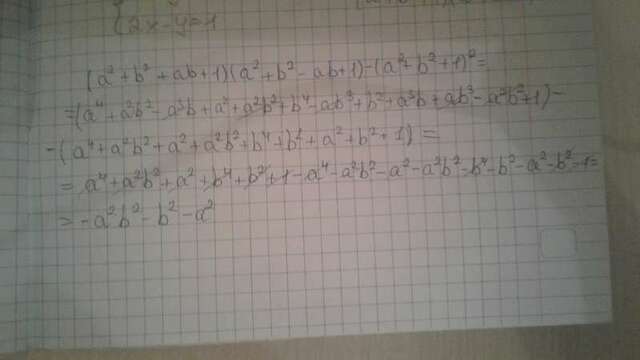 2x-y=1
(a²+b²+ab+1)(a²+b²-ab+1)-(a²+b²+1)²=
=(a⁴+a²b²-a³b+a²+a²b²+b⁴-ab³+b²+a³b+ab³-a²b²+1)-
-(a⁴+a²b²+a²+a²b²+b⁴+b²+a²+b²+1)=
=a⁴+a²b²+a²+b⁴+b²+1-a⁴-a²b²-a²-a²b²-b⁴-b²-a²-b²-1=
=-a²b²-b²-a²